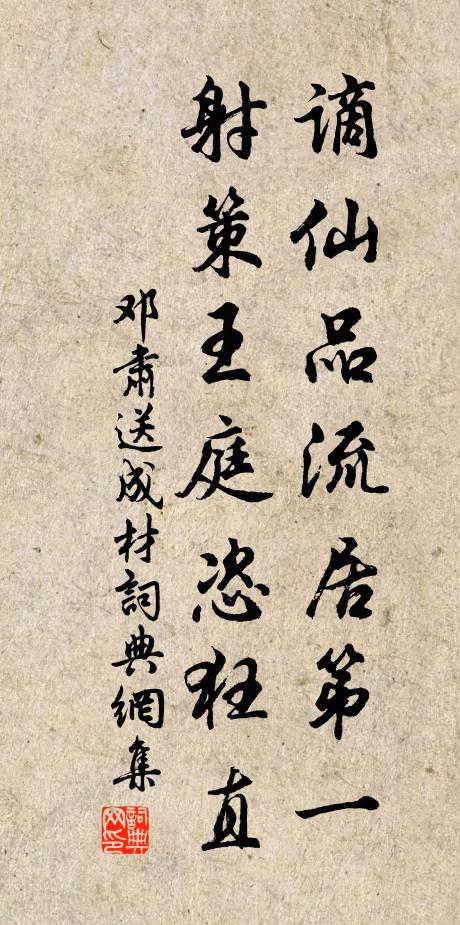 謫仙品流居第一
射策王庭恣狂直
邓肅送成材詞典網集
詞典网印